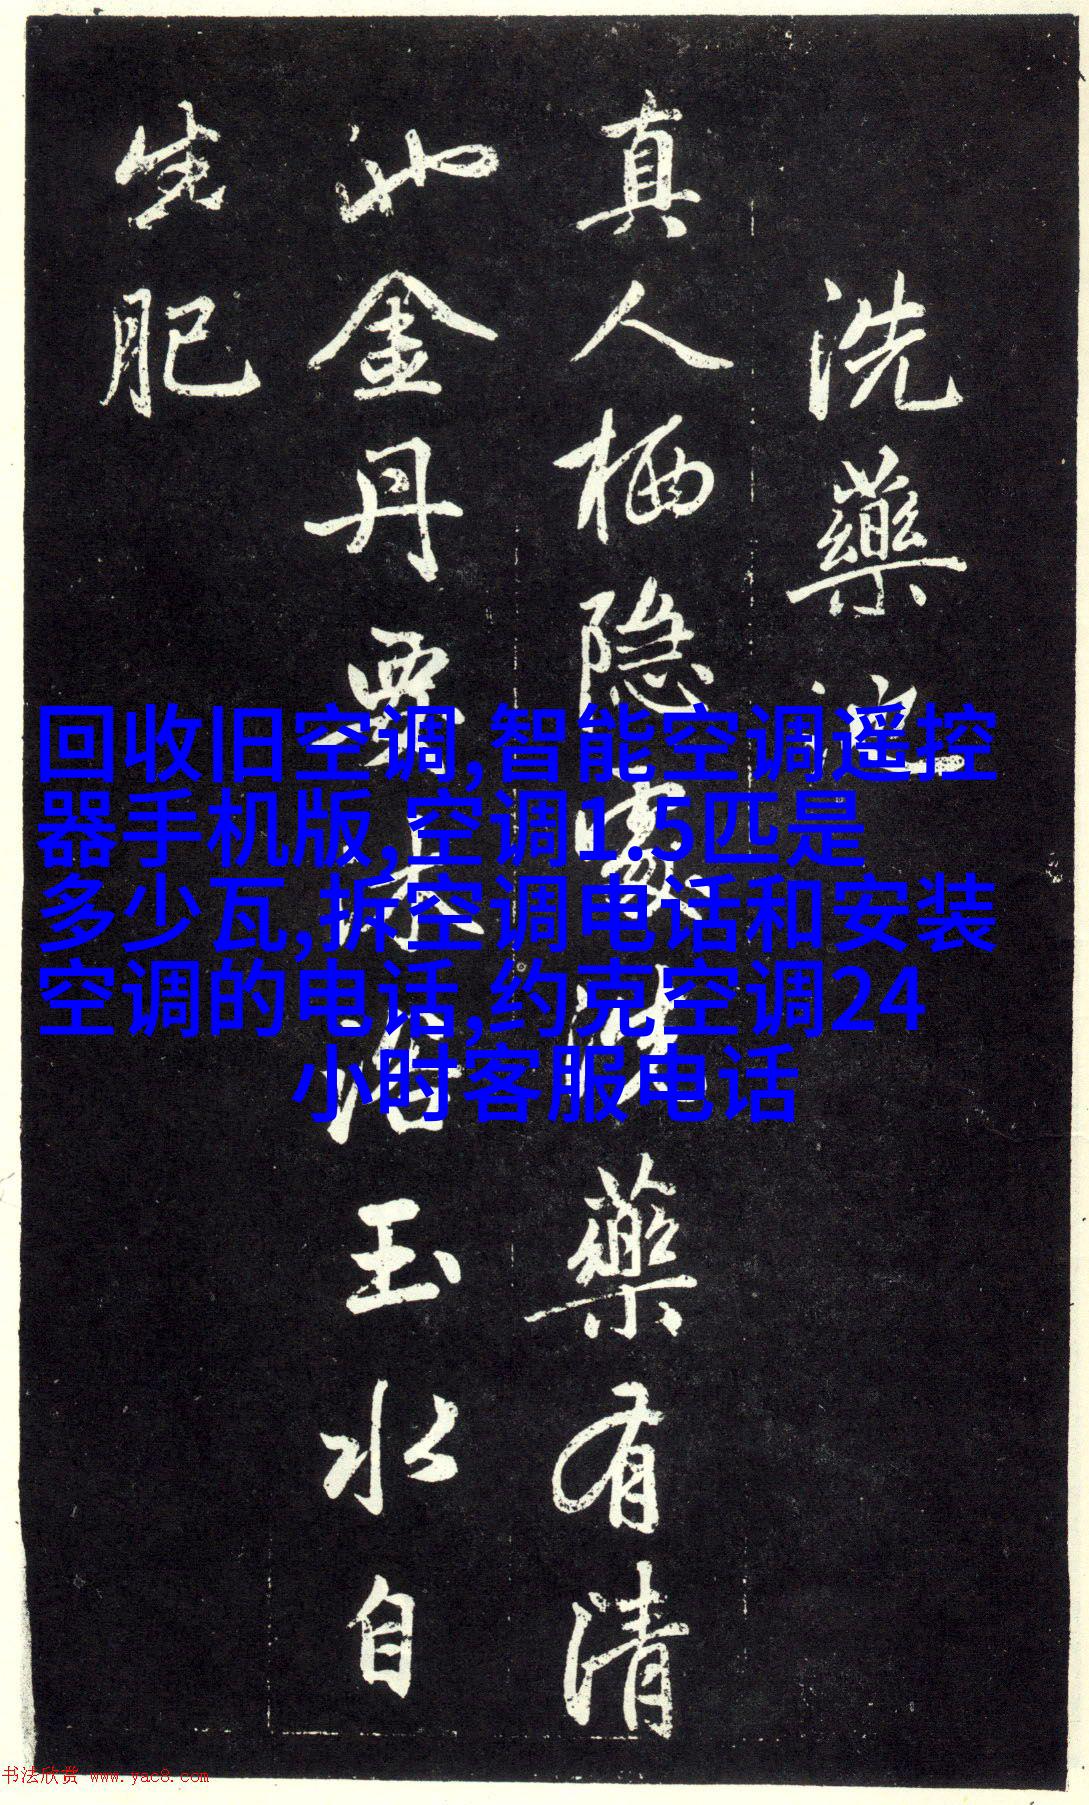 洗藥池
真人栖隐洗藥有清
池金丹要沐浴玉水自
生肥
回收旧空调,智能空调遥控
器手机版,空调1.5匹是
多少瓦,拆空调电话和安装
空调的电话,约克空调24
小时客服电话
书法欣赏 www.yac8.com